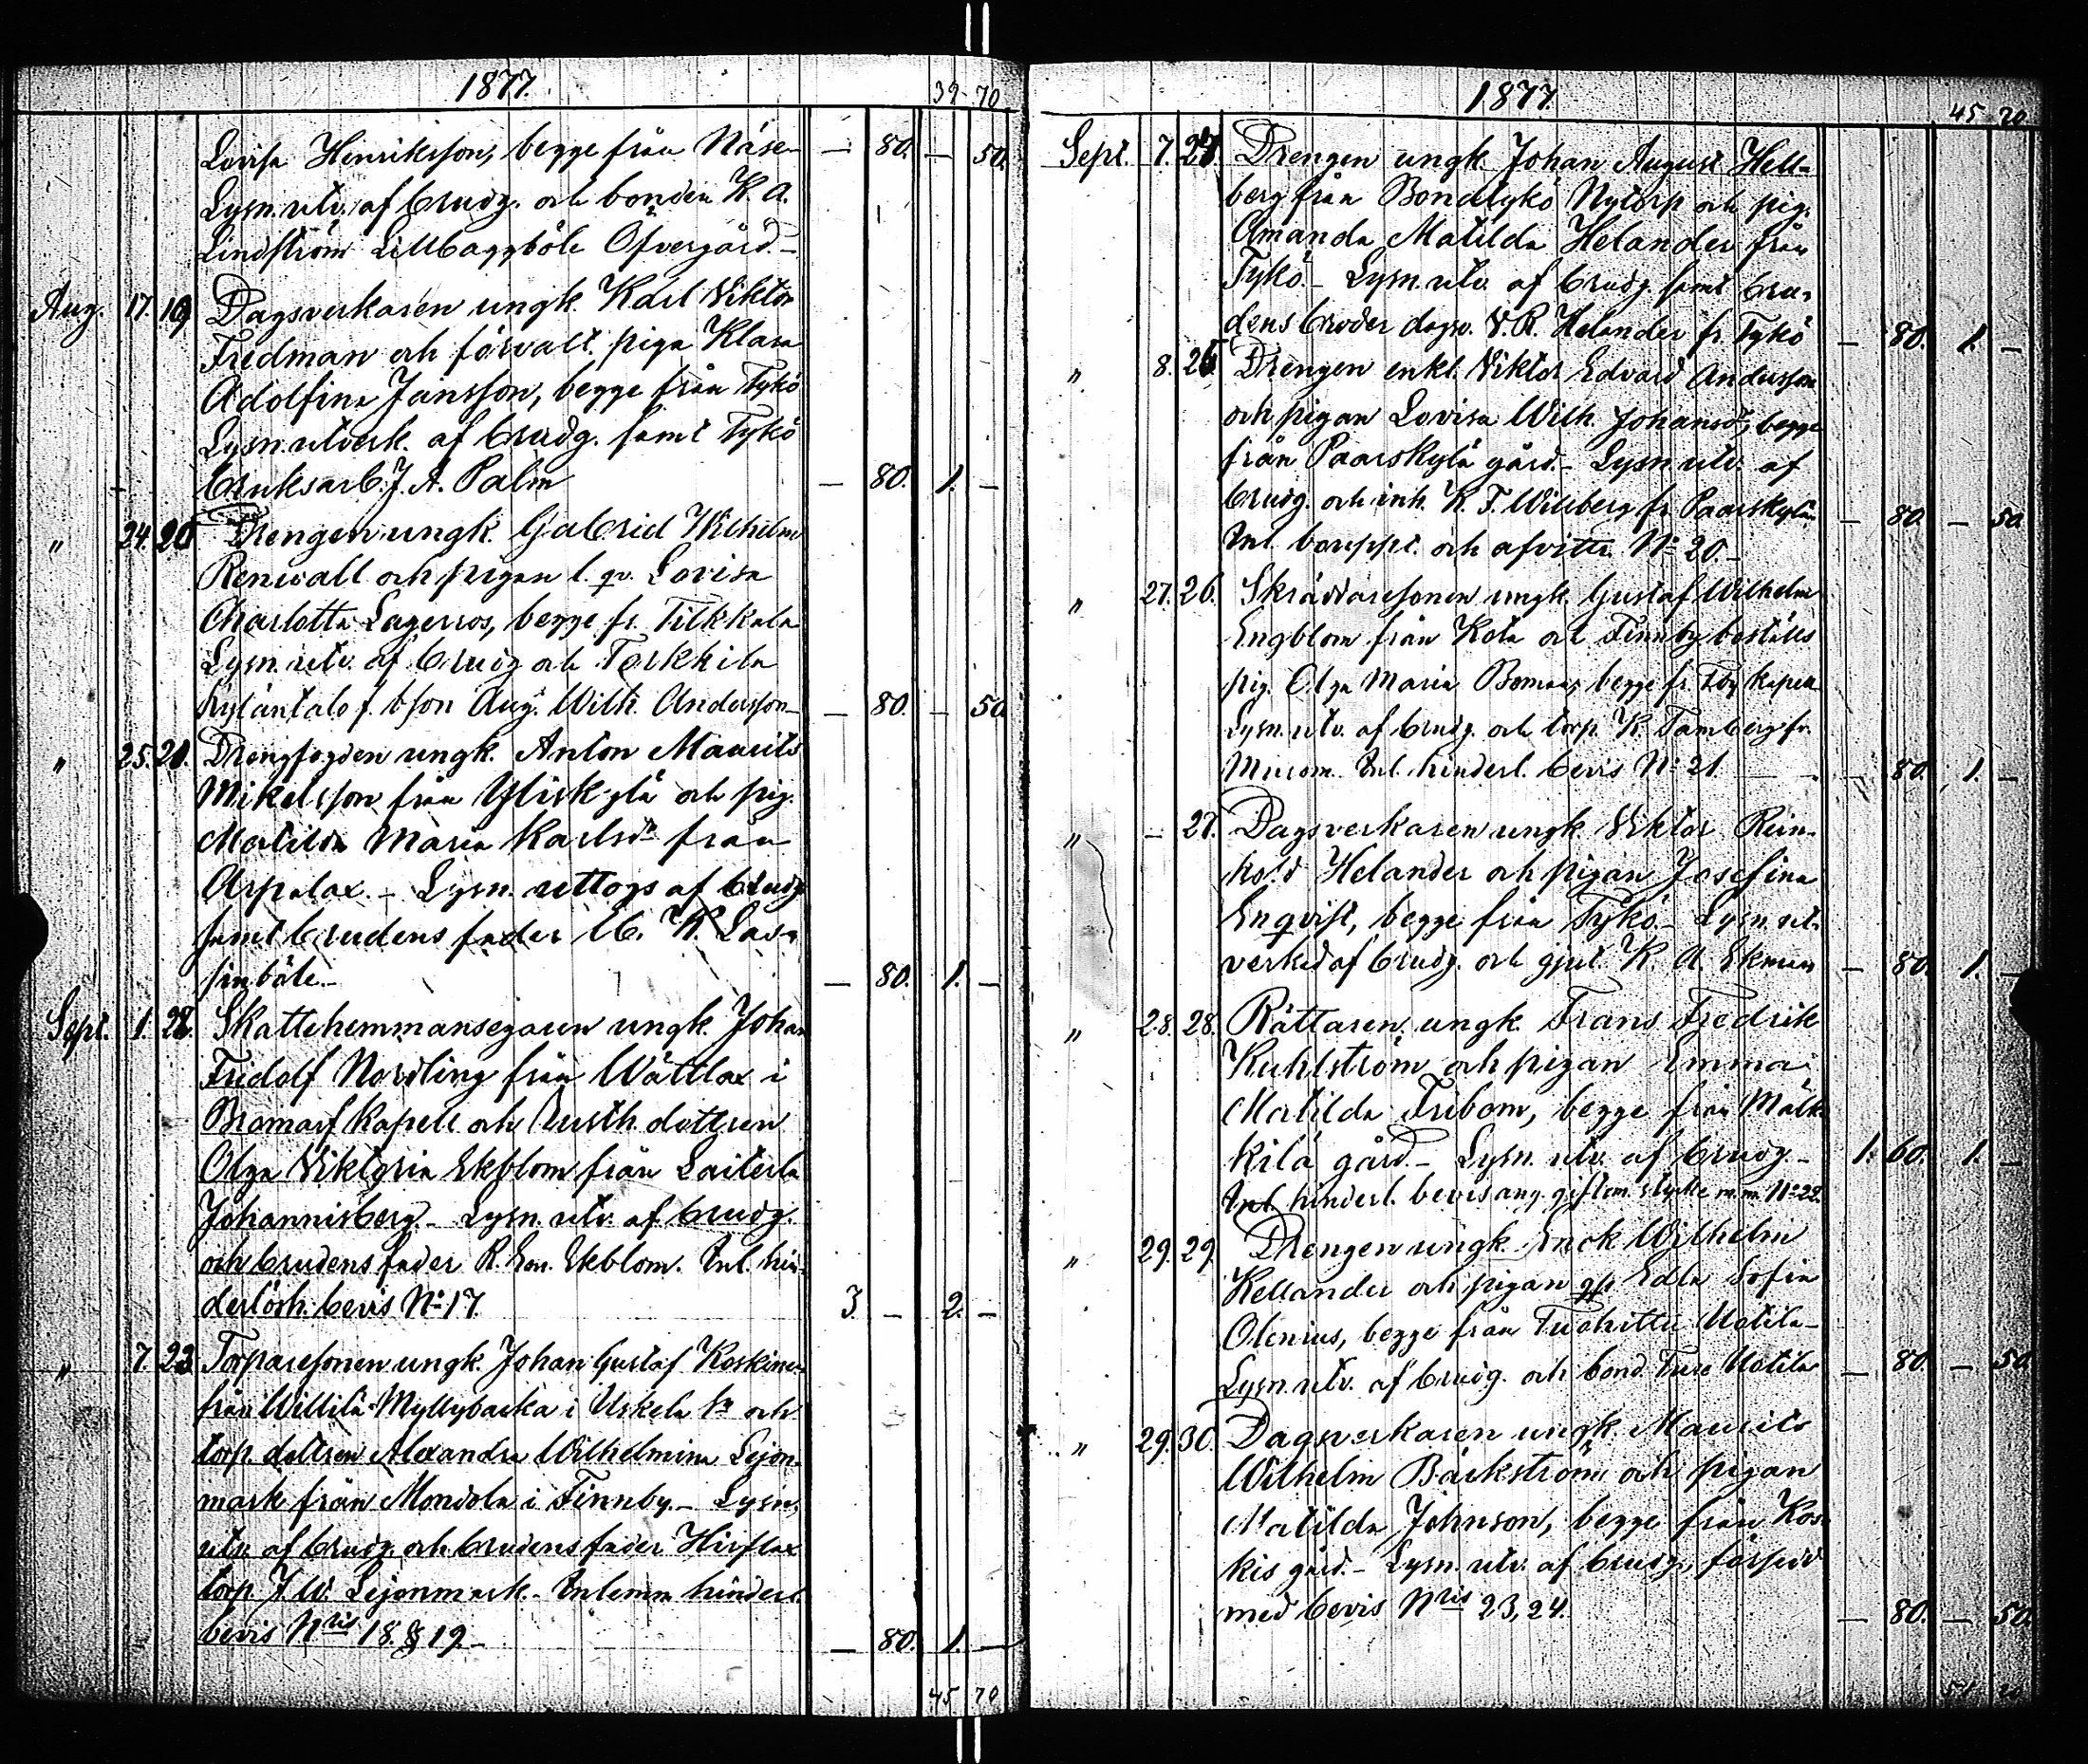 1877.
39 70
Lovisa Henriksson, begge från Näse — 80. — 50.
Lysn. utv. af brudg. och bonden K. A.
Lindström Lillbaggböle Öfvergård. —
Aug. 17. 19 Dagsverkaren ungk. Karl Viktor
Fredman och förvalt. piga Klara
Adolfina Jansson, begge från Tykö
Lysn. utverk. af brudg. samt Tykö
bruksarb. J. A. Palm — 80. 1. —
" 24. 20 Drengen ungk. Gabriel Wilhelm
Renwall och pigan l. qv. Lovisa
Charlotta Lagerros, begge fr. Tilkkala
Lysn. utv. af brudg och Torkkila
Kyläntalo f. bson Aug. Wilh. Andersson — — 80. — 50
" 25. 21. Drengfogden ungk. Anton Maurits
Mikelsson från Yliskylä och pig.
Matilda Maria Karlsdr från
Arpalax. — Lysn. uttogs af brudg
samt brudens fader M. K. Las-
pinböle. — — 80. 1. —
Sept. 1. 22. Skattehemmansegaren ungk. Johan
Fridolf Nordling från Wättlax i
Bromarf Kapell och rusth. dottren
Olga Viktoria Ekblom från Laiterla
Johannisberg. — Lysn. utv. af brudg.
och brudens fader R. Em. Ekblom. Inl. hin-
derlösh. bevis No 17. 3. — 2. —
" 7. 23 Torparesonen ungk. Johan Gustaf Koskinen
från Willilä Myllybacka i Uskela kn och
torp. dottren Alexandra Wilhelmina Lejon-
mark från Mondola i Finnby. — Lysn.
utv. af brudg. och brudens fader Hirslax
torp J. W. Lejonmark. — Inlemn hinderl.
bevis Nris 18. & 19 — — 80. 1. —
45 70
1877
45 70
Sept. 7. 24. Drengen ungk. Johan August Hell-
berg från Bondtykö Nytorp och pig.
Amanda Matilda Helander från
Tykö. — Lysn. utv. af brudg. samt bru-
dens broder dagsv. V. R. Helander fr. Tykö — 80. 1. —
" 8. 25 Drengen enkl. Viktor Edvard Andersson
och pigan Lovisa Wilh. Johansdr, begge
från Paarskylä gård. — Lysn. utv. af
brudg. och inh. K. F. Willberg fr. Paarskylä. — 80. — 50
Inl. bouppt. och afvittr. No 20. —
" 27. 26. Skräddaresonen ungk. Gustaf Wilhelm
Engblom från Kota och Finnby beställs
pig. Olga Maria Boman, begge fr. Fby Kapell
Lysn. utv. af brudg. och torp. K. Tamberg fr.
Murom. Inl. hinderl. bevis No 21. — 80. 1. —
" — 27. Dagsverkaren ungk. Viktor Rein-
hold Helander och pigan Josefina
Enqvist, begge från Tykö. — Lysn. ut-
verkad af brudg. och gjut. K. A. Ekman — 80. 1. —
" 28. 28. Rättaren ungk. Frans Fredrik
Kuhlström och pigan Emma
Matilda Fribom, begge från Mälk-
kilä gård. — Lysn. utv. af brudg. — 1. 60. 1. —
Inl. hinderl. bevis ang. giftom. styrke m.m. No 22.
" 29. 29. Drengen ungk. Enok Wilhelm
Kellander och pigan Edla Sofia
Olenius, begge från Tuohittu Uotila —
Lysn. utv. af brudg. och bond. Ture Uotila — 80. — 50.
" 29. 30. Dagsverkaren ungk. Maurits
Wilhelm Bäckström och pigan
Matilda Johnson, begge från Kos-
kis gård. — Lysn. utv. af brudg, försedd
med bevis Nris 23, 24. — 80. — 50.